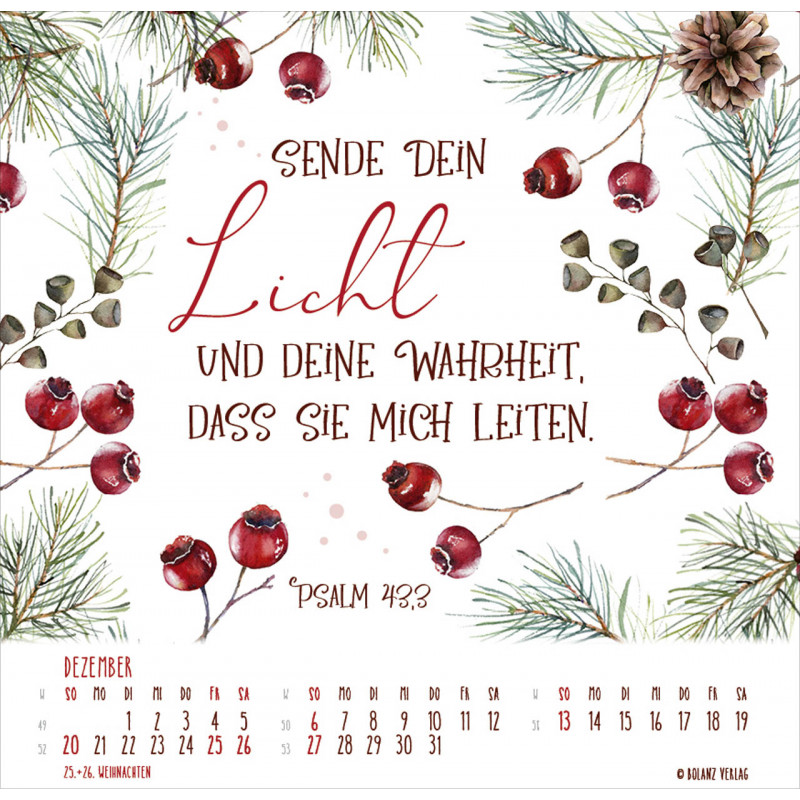 SENDE DEIN
Licht
UND DEINE WAHRHEIT,
DASS SIE MICH LEITEN.
PSALM 43,3
DEZEMBER
W SO MO DI MI DO FR SA W SO MO DI MI DO FR SA W SO MO DI MI DO FR SA
49 1 2 3 4 5 50 6 7 8 9 10 11 12 51 13 14 15 16 17 18 19
52 20 21 22 23 24 25 26 53 27 28 29 30 31
25.+26. WEIHNACHTEN
© BOLANZ VERLAG